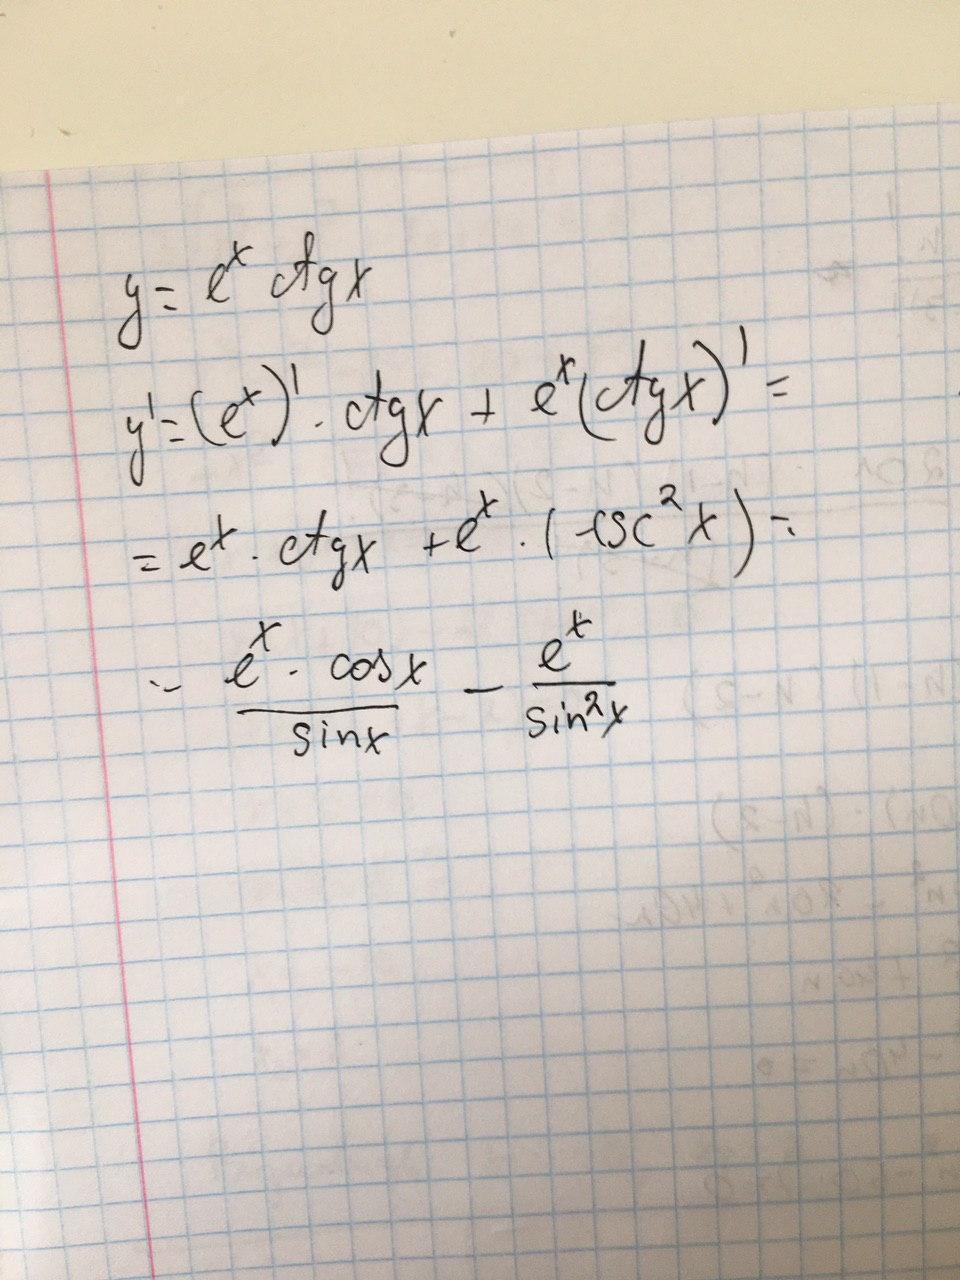 y = e^x ctgx
y' = (e^x)' · ctgx + e^x (ctgx)' =
= e^x · ctgx + e^x · (-csc^2 x) =
= (e^x · cosx)/(sinx) - (e^x)/(sin^2 x)